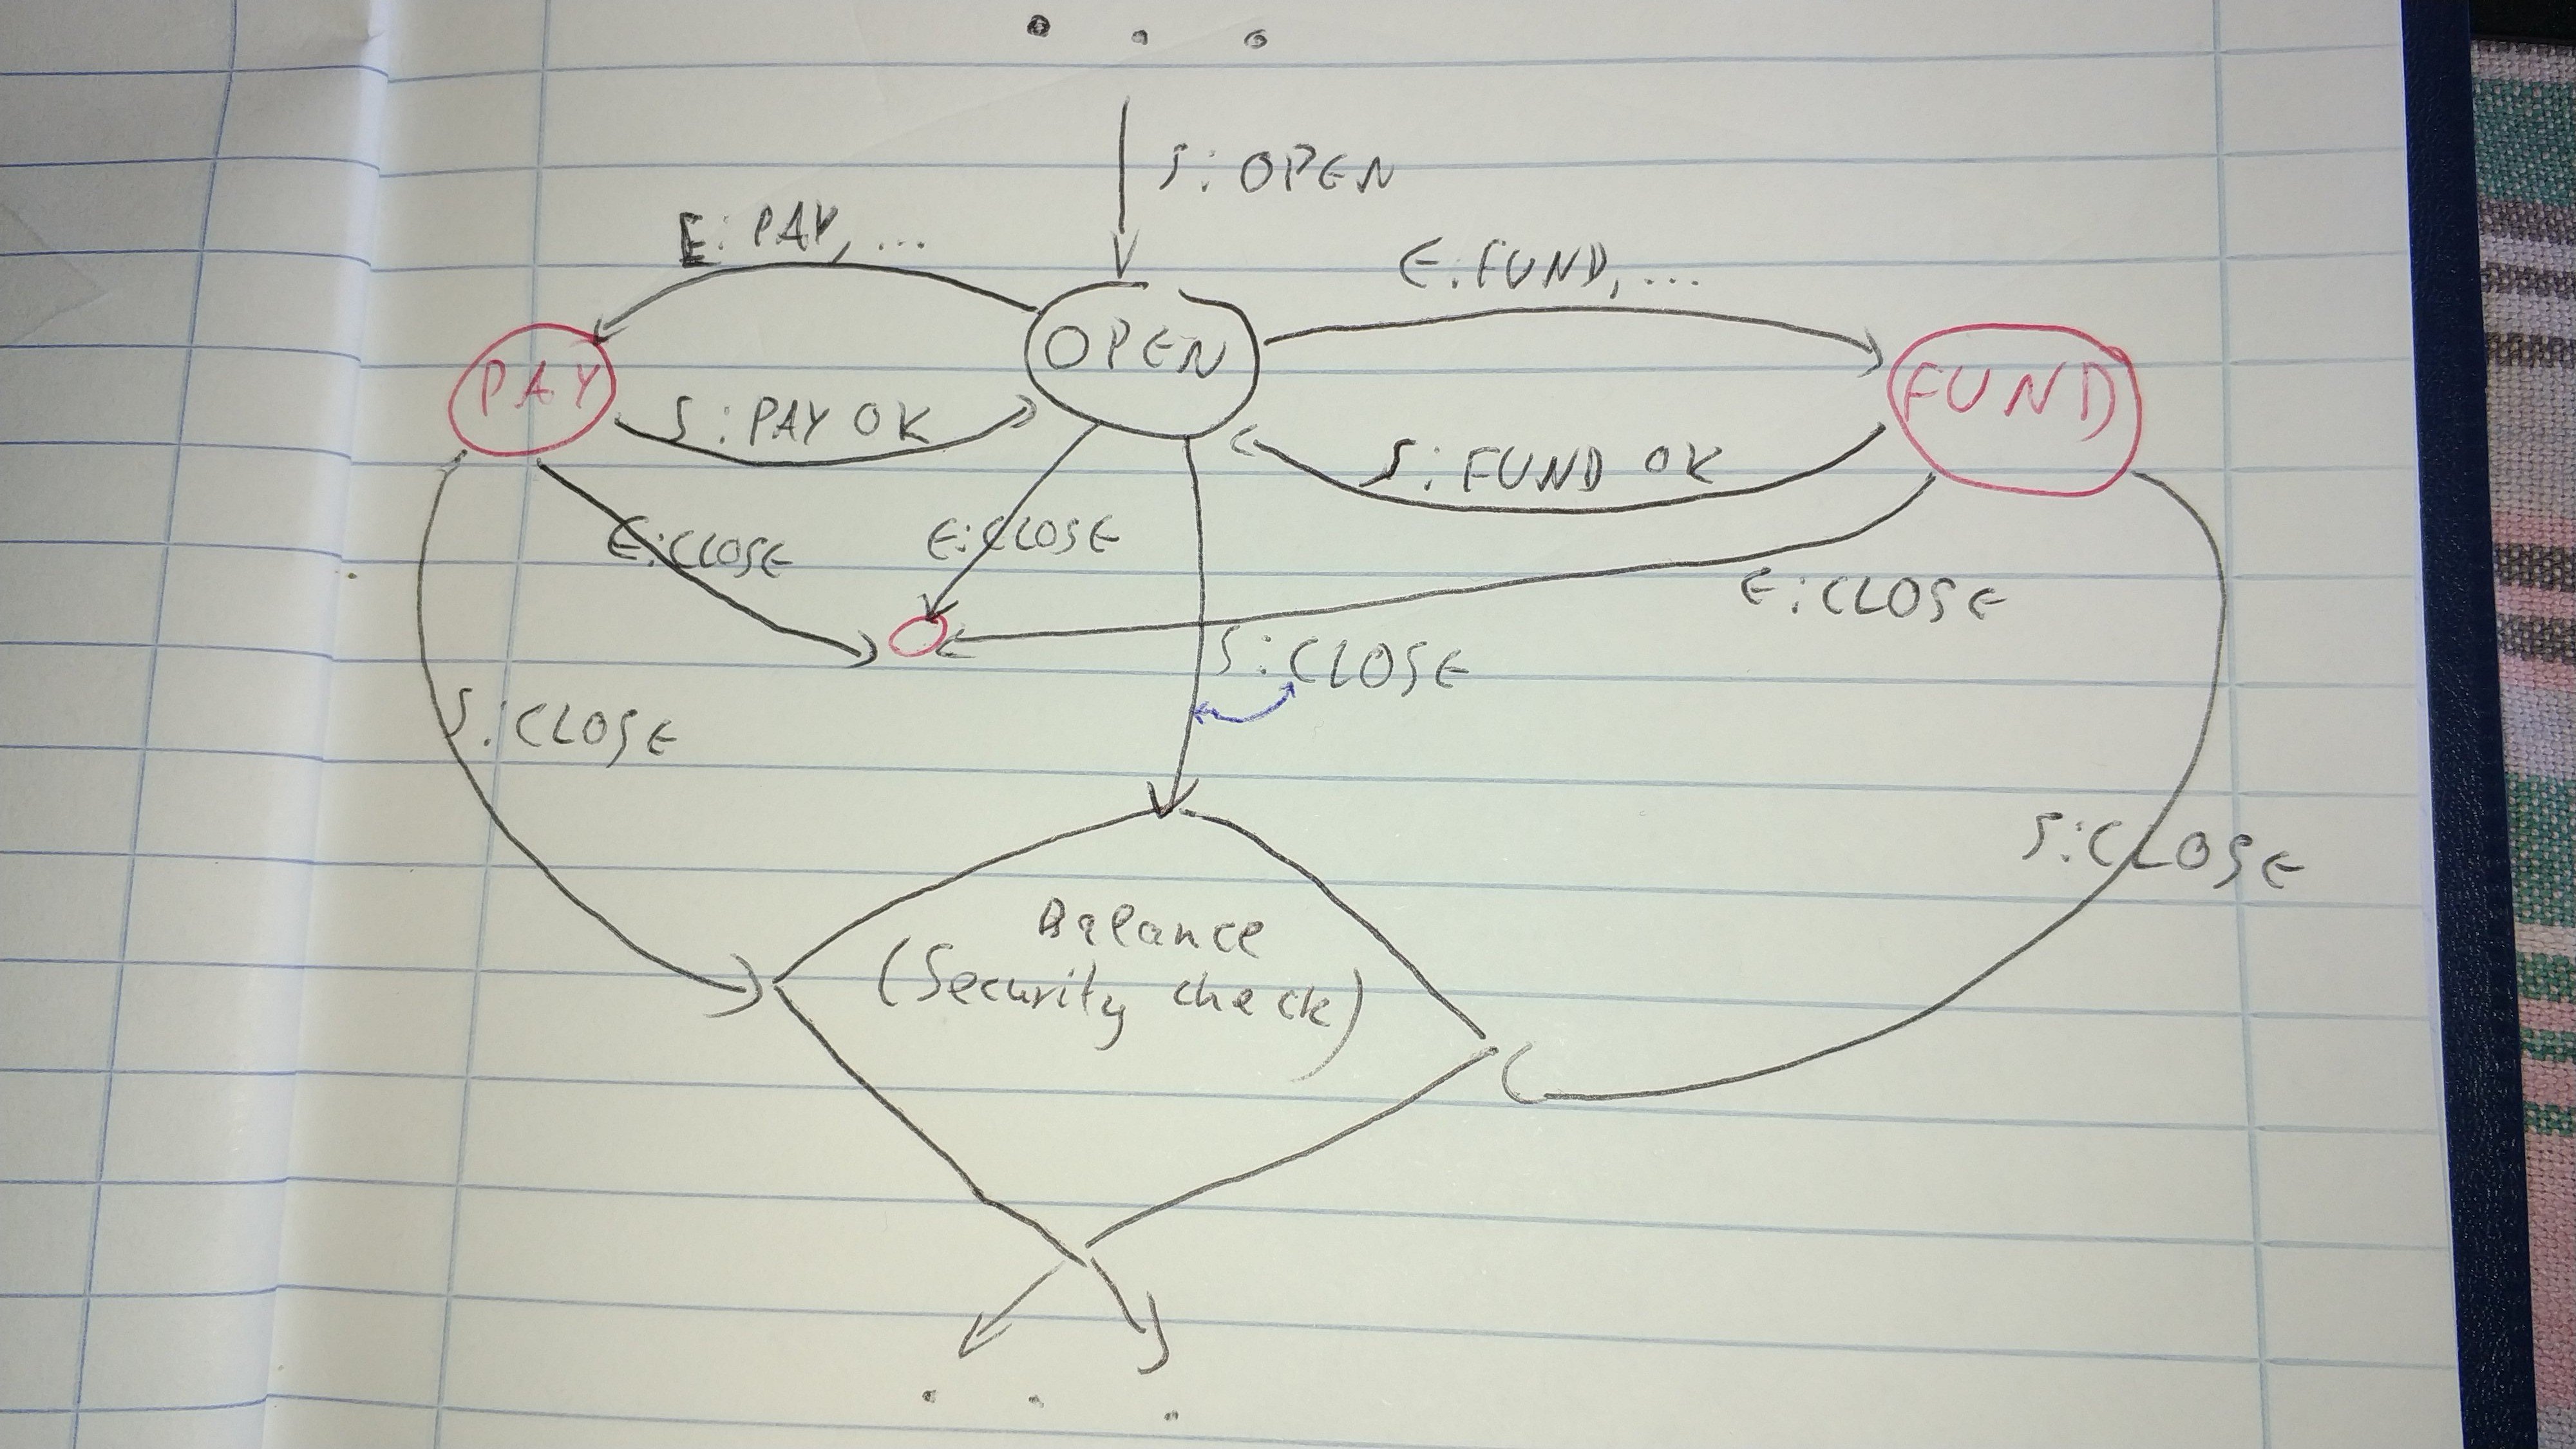 . . .
S: OPEN
E: PAY, ...
E: FUND, ...
OPEN
PAY
FUND
S: PAY OK
S: FUND OK
E: CLOSE
E: CLOSE
E: CLOSE
S: CLOSE
S: CLOSE
S: CLOSE
Balance
(Security check)
. . .